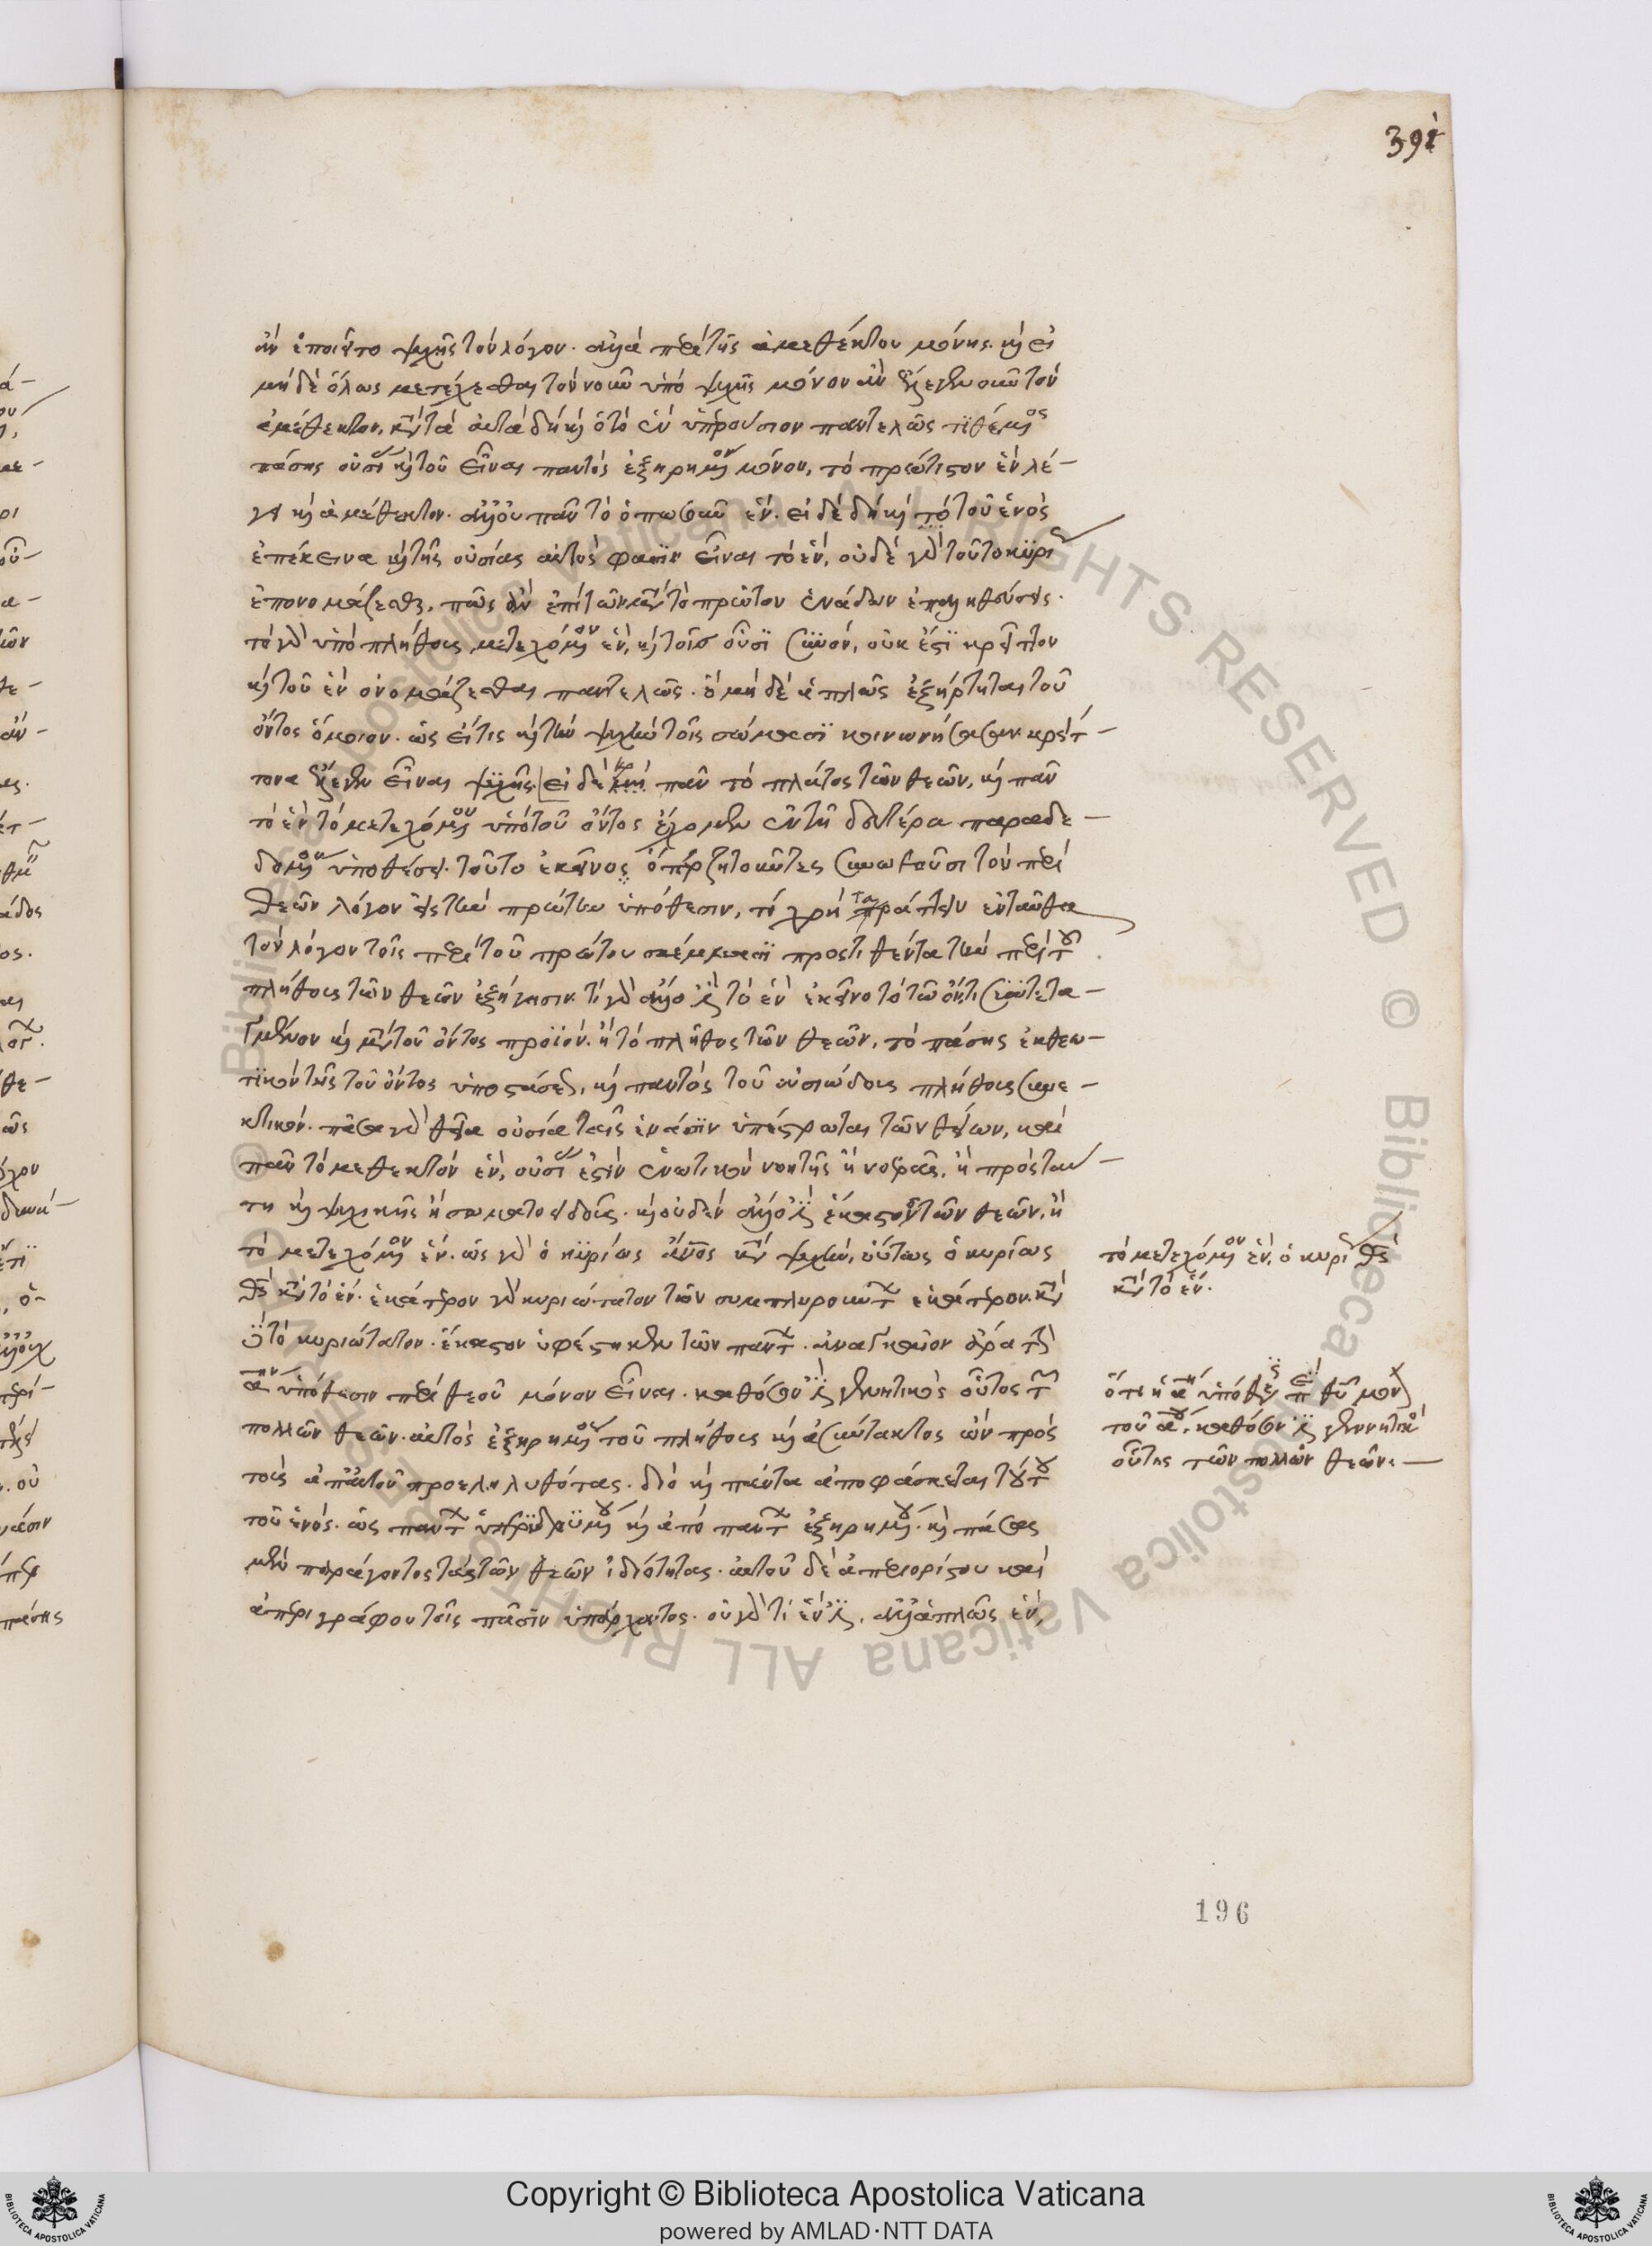 391
ἂν ἐποιεῖτο ψυχῆς τὸν λόγον. ἀλλὰ περὶ τῆς ἀμεθέκτου μόνης. καὶ εἰ
μηδὲ ὅλως μετέχεσθαι τὸν νοῦν ὑπὸ ψυχῆς μόνον ἂν ἔλεγεν νοῦν τὸν
ἀμέθεκτον, κατὰ τὰ αὐτὰ δὴ καὶ ὁ τὸ ἓν ὑπερούσιον παντελῶς τιθέμενος
πάσης οὐσίας καὶ τοῦ εἶναι παντὸς ἐξῃρημένον μόνον, τὸ πρώτιστον ἓν λέ-
γει καὶ ἀμέθεκτον. ἀλλ' οὐ πᾶν τὸ ὁπωσοῦν ἕν. εἰ δὲ δὴ καὶ τὸ τοῦ ἑνὸς
ἐπέκεινα καὶ τῆς οὐσίας αὐτός φασιν εἶναι τὸ ἕν, οὐδὲ γὰρ τοῦτο κυρίως
ἐπονομάζεσθαι, πῶς ἂν ἐπὶ τῶν μετὰ τὸ πρῶτον ἑνάδων ἐποιήσατο
τὸ γὰρ ὑπὸ πλήθους μετεχόμενον ἕν, καὶ τοῖς οὖσι συνόν, οὐκ ἔστι κρεῖττον
καὶ τοῦ ἓν ὀνομάζεσθαι παντελῶς. ὃ μηδὲ ἁπλῶς ἐξῄρηται τοῦ
ὄντος ὅμοιον. ὡς εἴ τις καὶ τὴν ψυχὴν τοῖς σώμασι κοινωνήσασαν κρείτ-
τονα λέγειν εἶναι ψυχῆς. εἰ δὲ πᾶν τὸ πλάτος τῶν θεῶν, καὶ πᾶν
τὸ ἓν τὸ μετεχόμενον ὑπὸ τοῦ ὄντος ἔχομεν ἐν τῇ δευτέρᾳ παραδε-
δομένον ὑποθέσει. τοῦτο ἐκεῖνος ὅπερ ζητοῦντες συνωθοῦσι τὸν περὶ
θεῶν λόγον εἰς τὴν πρώτην ὑπόθεσιν, τί χρὴ ταράττειν ἐνταῦθα
τὸν λόγον τοῖς περὶ τοῦ πρώτου σκέμμασι προστιθέντα τὴν περὶ τοῦ
πλήθους τῶν θεῶν ἐξήγησιν. τί γὰρ ἄλλο ἐστὶ τὸ ἓν ἐκεῖνο τὸ τῷ ὄντι συντετα-
γμένον καὶ μετὰ τοῦ ὄντος προϊόν. ἢ τὸ πλῆθος τῶν θεῶν, τὸ πάσης ἐκθεω-
τικὸν τῆς τοῦ ὄντος ὑποστάσεως, καὶ παντὸς τοῦ οὐσιώδους πλήθους συνε-
κτικόν. πᾶσα γὰρ θεία οὐσία ταῖς ἑνάσιν ὑπέστρωται τῶν θεῶν, καὶ
πᾶν τὸ μεθεκτὸν ἕν, οὐσίας ἐστὶν ἑνωτικὸν νοητῆς ἢ νοερᾶς, ἢ πρὸς ταύ-
τῃ καὶ ψυχικῆς ἢ σωματοειδοῦς. καὶ οὐδὲν ἄλλο ἐστὶ ἕκαστον τῶν θεῶν, ἢ
τὸ μετεχόμενον ἕν. ὡς γὰρ ὁ κυρίως ἄνθρωπος κατὰ ψυχήν, οὕτως ὁ κυρίως
θεὸς κατὰ τὸ ἕν. ἑκάτερον γὰρ κυριώτατον τῶν συμπληρούντων ἑκάτερον. κατὰ
δὲ τὸ κυριώτατον. ἕκαστον ὑφέστηκεν τῶν πάντων. ἀναγκαῖον ἄρα τὴν
πρώτην ὑπόθεσιν περὶ θεοῦ μόνον εἶναι. καθόσον ἐστὶ γεννητικὸς οὗτος τῶν
πολλῶν θεῶν. αὐτὸς ἐξῃρημένος τοῦ πλήθους καὶ ἀσύντακτος ὢν πρὸς
τοὺς ἀπ' αὐτοῦ προεληλυθότας. διὸ καὶ πάντα ἀποφάσκεται τούτου
τοῦ ἑνός. ὡς πάντων ὑπεριδρυμένου καὶ ἀπὸ πάντων ἐξῃρημένου. καὶ πάσας
μὲν παράγοντος τὰς τῶν θεῶν ἰδιότητας. αὐτοῦ δὲ ἀπεριορίστου καὶ
ἀπεριγράφου τοῖς πᾶσιν ὑπάρχοντος. οὐ γὰρ τὶ ἕν ἐστι, ἀλλ' ἁπλῶς ἕν,
τὸ μετεχόμενον ἕν, ὁ κυρίως θεὸς
κατὰ τὸ ἕν.
ὅτι ἡ πρώτη ὑπόθεσις ἐστὶ περὶ θεοῦ μόνου
τοῦ πρώτου, καθόσον ἐστὶ γεννητικὸς
οὗτος τῶν πολλῶν θεῶν.
196
Copyright © Biblioteca Apostolica Vaticana
powered by AMLAD·NTT DATA